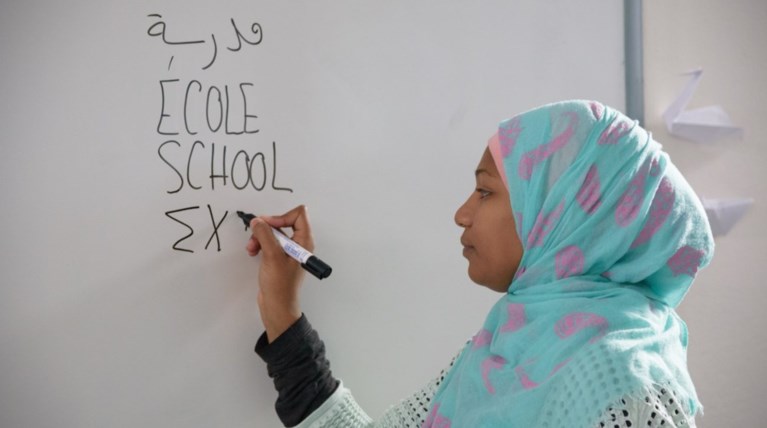 مدرسة
ÉCOLE
SCHOOL
ΣΧ